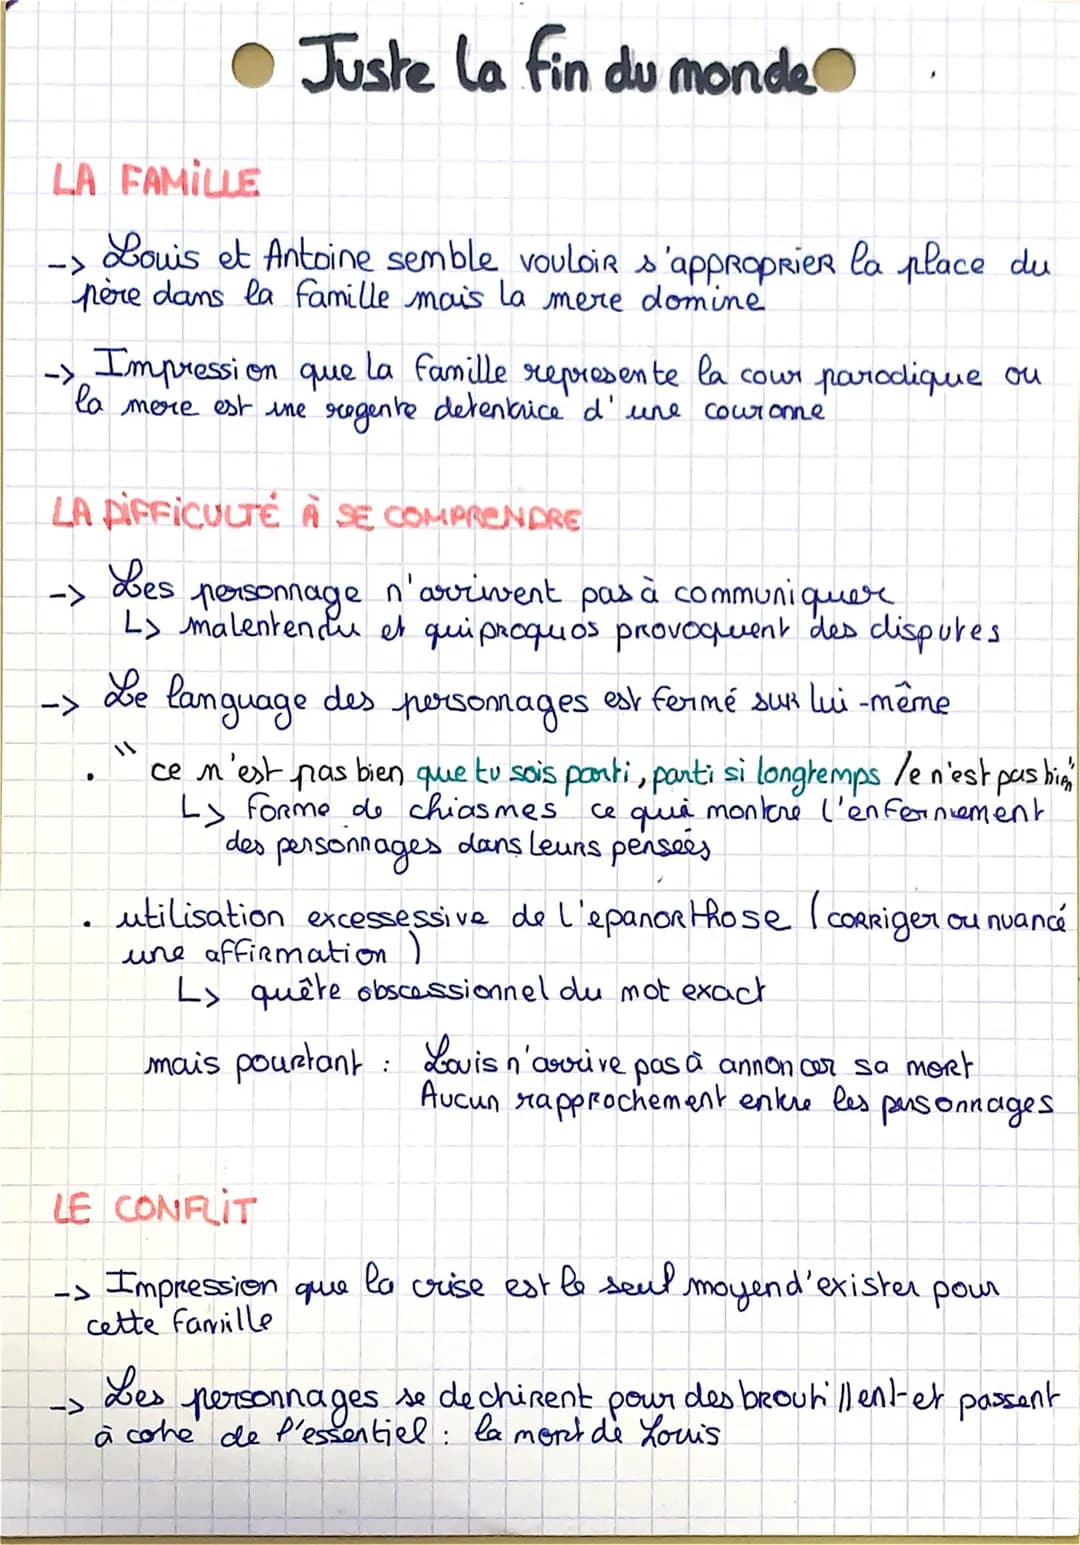 Juste la fin du monde
LA FAMILLE
-> Louis et Antoine semble vouloir s'approprier la place du
père dans la famille mais la mere domine
-> Impression que la famille represente la cour parodique ou
la mere est une regente detentrice d'une couronne
LA DIFFICULTÉ À SE COMPRENDRE
-> Les personnage n'arrivent pas à communiquer
L> malentendu et quiproquos provoquent des disputes
-> Le language des personnages est fermé sur lui-même
. " ce n'est pas bien que tu sois parti, parti si longtemps /e n'est pas bien"
L> forme de chiasmes ce qui montre l'enfermement
des personnages dans leurs pensées
. utilisation excessessive de l'epanorthose (corriger ou nuancé
une affirmation )
L> quête obscessionnel du mot exact
mais pourtant : Louis n'arrive pas à annoncer sa mort
Aucun rapprochement entre les personnages
LE CONFLIT
-> Impression que la crise est le seul moyen d'exister pour
cette famille
-> Les personnages se dechirent pour des broutillent et passent
à cote de l'essentiel : la mort de Louis